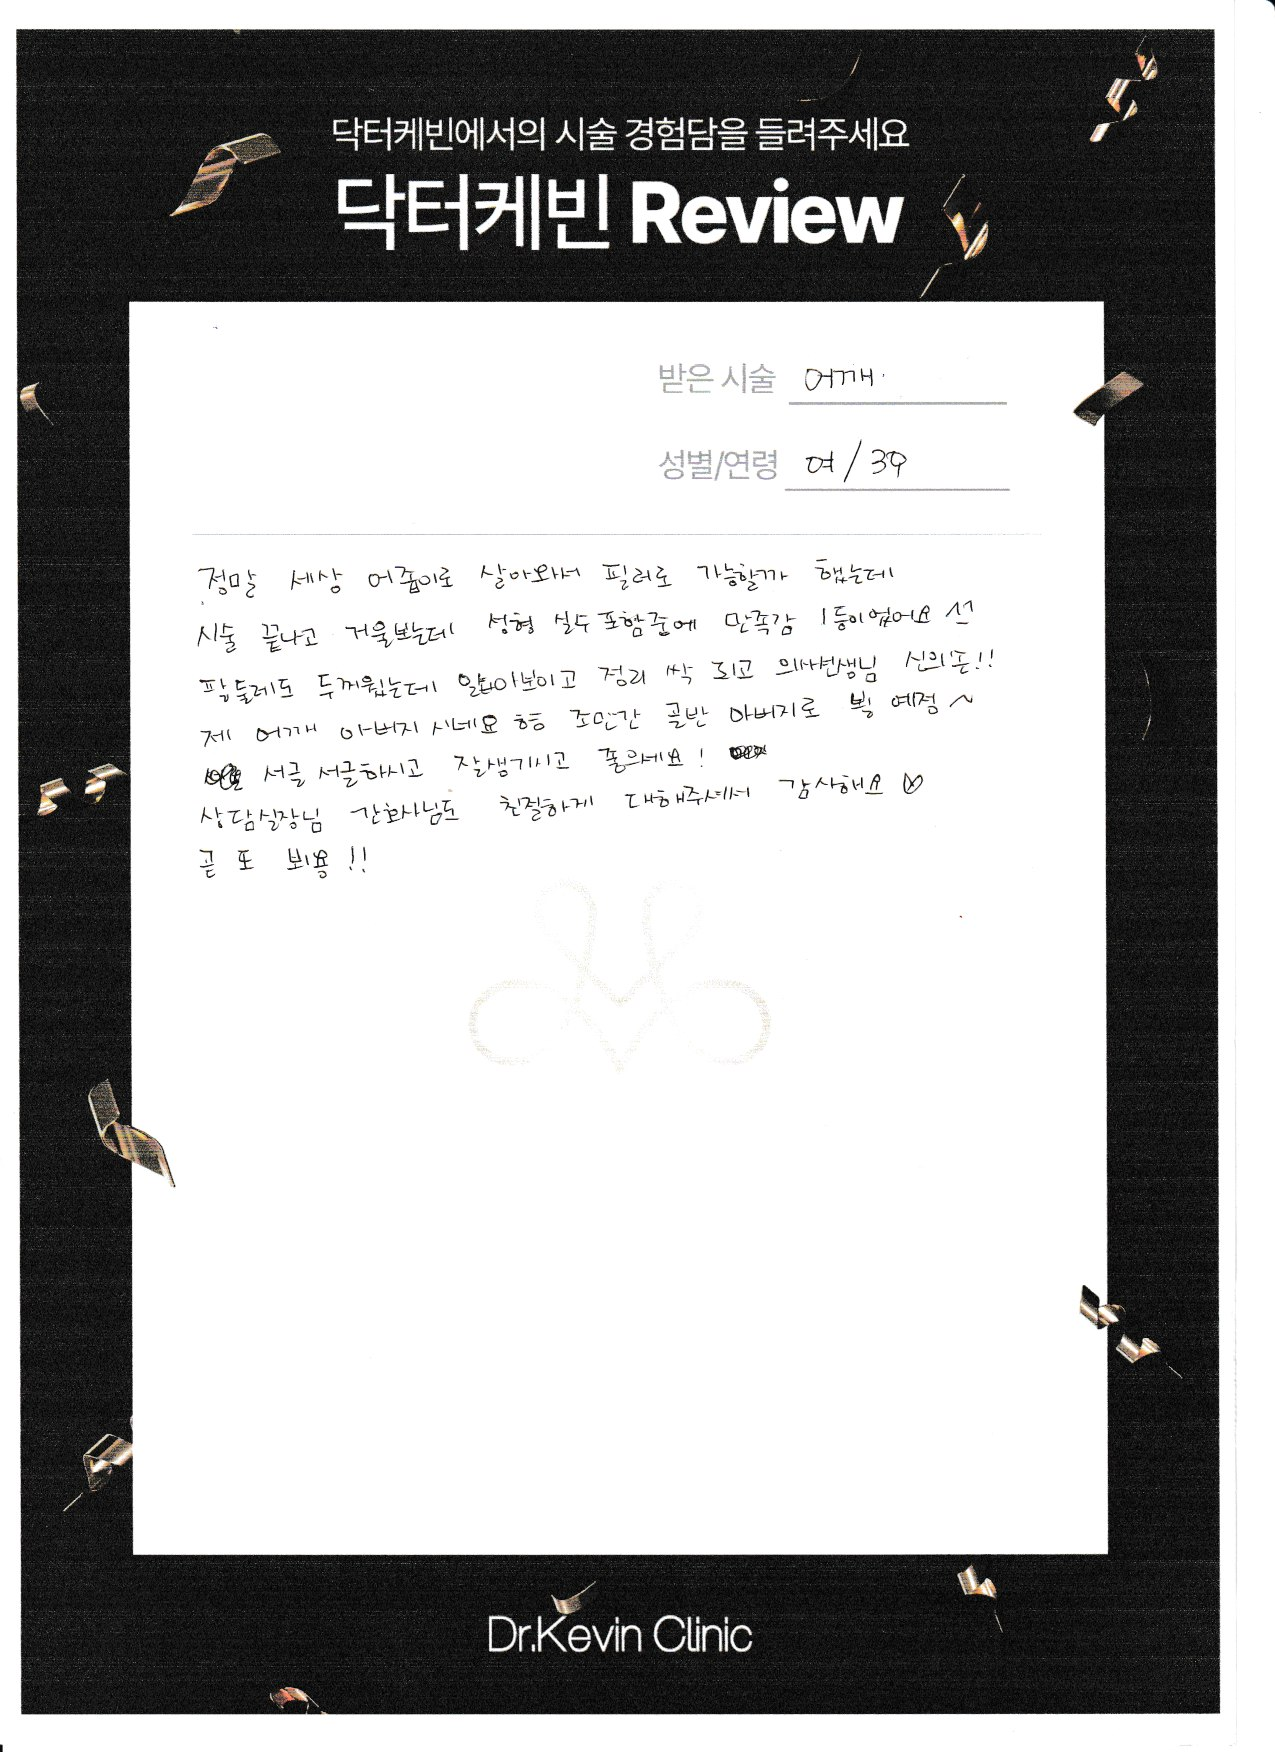 닥터케빈에서의 시술 경험담을 들려주세요
닥터케빈 Review
받은 시술 어깨.
성별/연령 여 / 39
정말 세상 어좁이로 살아와서 필러로 가능할까 했는데
시술 끝나고 거울보는데 성형 실수 포함중에 만족감 1등이었어요 선
팔둘레도 두꺼웠는데 얇아보이고 정리 싹 되고 의사선생님 신의손!!
제 어깨 아버지 시네요 흠 조만간 골반 아버지로 뵐 예정~
서글서글하시고 잘생기시고 좋으세요!
상담실장님 간호사님도 친절하게 대해주셔서 감사해요
곧 또 뵈용!!
Dr.Kevin Clinic